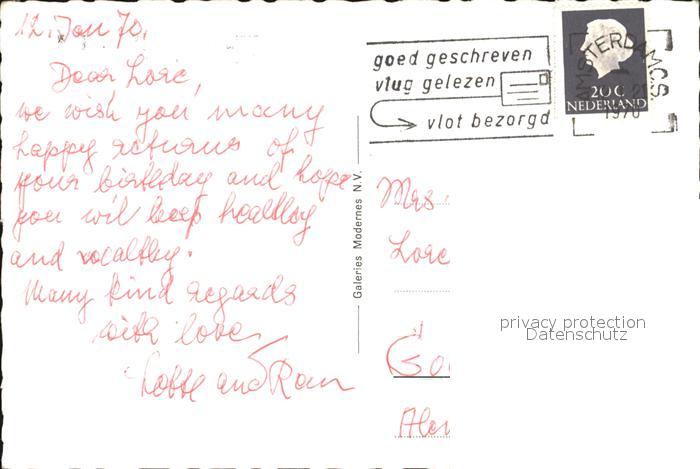 12. Jan 70.
Dear Lore,
we wish you many
happy returns of
your birthday and hope
you wil keep healthy
and wealthy.
Many kind regards
with love
Lotte and Ron
Galeries Modernes N.V.
goed geschreven
vlug gelezen
vlot bezorgd
AMSTERDAM C.S.
1970
20 C
NEDERLAND
Mrs.
Lore
privacy protection
Datenschutz